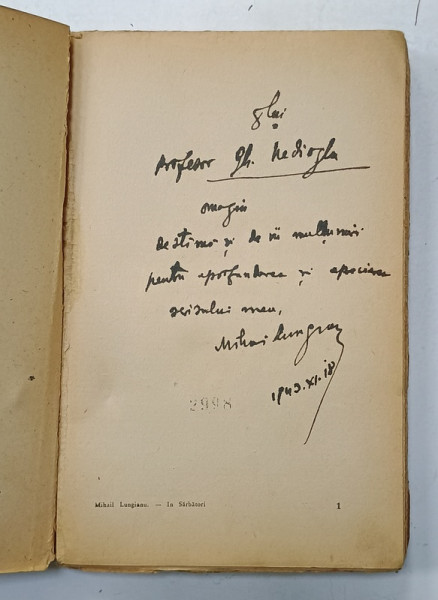 Dlui
Profesor Gh. Nedioglu
omagiu
de stimă și de vii mulțumiri
pentru aprofundarea și aprecierea
scrisului meu,
Mihai Lungianu
1943.XI.18
2998
Mihail Lungianu. — In Sărbători
1